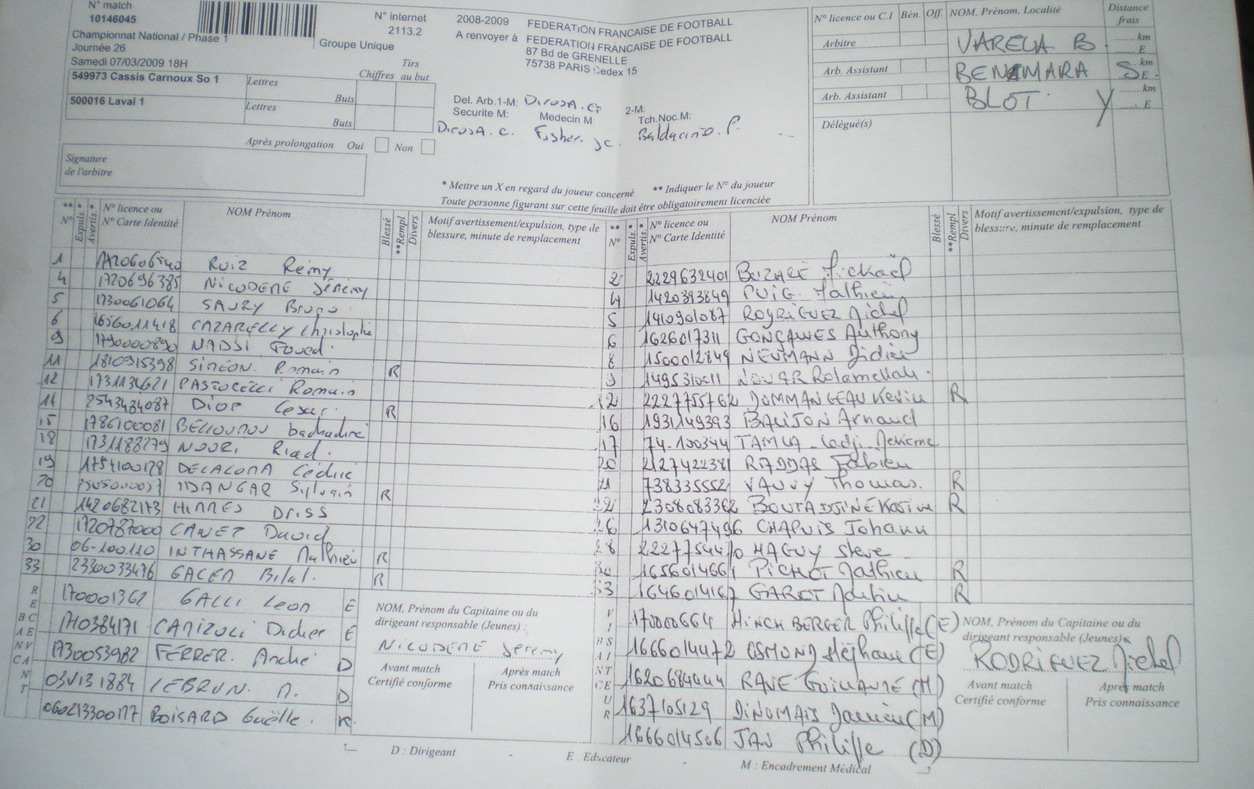 N° match
10146045
Championnat National / Phase 1
Journée 26
Samedi 07/03/2009 18H
549973 Cassis Carnoux So 1
500016 Laval 1
N° internet
2113.2
Groupe Unique
Tirs
Chiffres au but
Lettres
Buts
Lettres
Buts
Après prolongation Oui Non
Signature
de l'arbitre
2008-2009 FEDERATION FRANCAISE DE FOOTBALL
A renvoyer à FEDERATION FRANCAISE DE FOOTBALL
87 Bd de GRENELLE
75738 PARIS Cedex 15
Del. Arb.1-M: 2-M:
Securite M: Medecin M Tch.Noc.M:
Fisher JC.
* Mettre un X en regard du joueur concerné ** Indiquer le N° du joueur
Toute personne figurant sur cette feuille doit être obligatoirement licenciée
N° licence ou C.I Bén. Off. NOM, Prénom, Localité Distance frais
Arbitre VARELA B. km E
Arb. Assistant BENAMARA S. km E.
Arb. Assistant BLOT. Y km E
Délégué(s)
** N° Expuls.* Avertis.* N° licence ou N° Carte Identité NOM Prénom Blessé **Rempl Divers Motif avertissement/expulsion, type de blessure, minute de remplacement
1 RUIZ Rémy
4 1720696385 NICODEME Jérémy
5 1730061064 SAURY Bruno
6 CAZARELLY Christophe
9 Foued
11 1810915398 SIMEON. Romain R
12 1731134621 PASTORELLI Romain
14 2543484087 DIOP Cesar. R
15 1786100081
18 1731188279 NOURI Riad.
19 Cédric
20 IDANGAR Sylvain R
21 1420682173 HIMMES DRISS
22 1720787000 CANET David
30 06-100110 INTHASSANE Mathieu R
33 2330033476 GACEM Bilal. R
** N° Expuls.* Avertis.* N° licence ou N° Carte Identité NOM Prénom Blessé **Rempl Divers Motif avertissement/expulsion, type de blessure, minute de remplacement
2 2229632401 BUZARE Mickaël
4 1420393849 PUIG Mathieu
5 1410901087 RODRIGUEZ Michel
6 1626017311 GONÇALVES Anthony
8 1500012849 NEUMANN Didier
9
12 2227755762 DOMMANGEAU Kevin R
16 1931149393 BALIJON Arnaud
17 74-100344
20 2127422381 RADDAS Fabien
21 738335552 VAUVY Thomas. R
22 2308083362 BOUTADJINE R
26 1310647496 CHAPUIS Johann
28 2227754470 HAGUY Steve
30 1656014661 PICHOT Mathieu R
33 1646014167 GAROT R
RECEVANT
170001362 GALLI Leon E
1710384171 CANIZULI Didier E
1730053982 FERRER. André D
LEBRUN. M. D
060213300177 BOISARD Gaëlle.
NOM, Prénom du Capitaine ou du
dirigeant responsable (Jeunes) :
NICODEME Jeremy
Avant match
Certifié conforme
Après match
Pris connaissance
VISITEUR
1700000664 HINSCHBERGER Philippe (E)
1666014472 OSMOND Stéphane (E)
1620684444 RAVE Guillaumé (M)
1637105129 DINOMAIS Damien (M)
1666014506 JAN Philippe (D)
NOM, Prénom du Capitaine ou du
dirigeant responsable (Jeunes)
RODRIGUEZ Michel
Avant match
Certifié conforme
Après match
Pris connaissance
D : Dirigeant E : Educateur M : Encadrement Médical